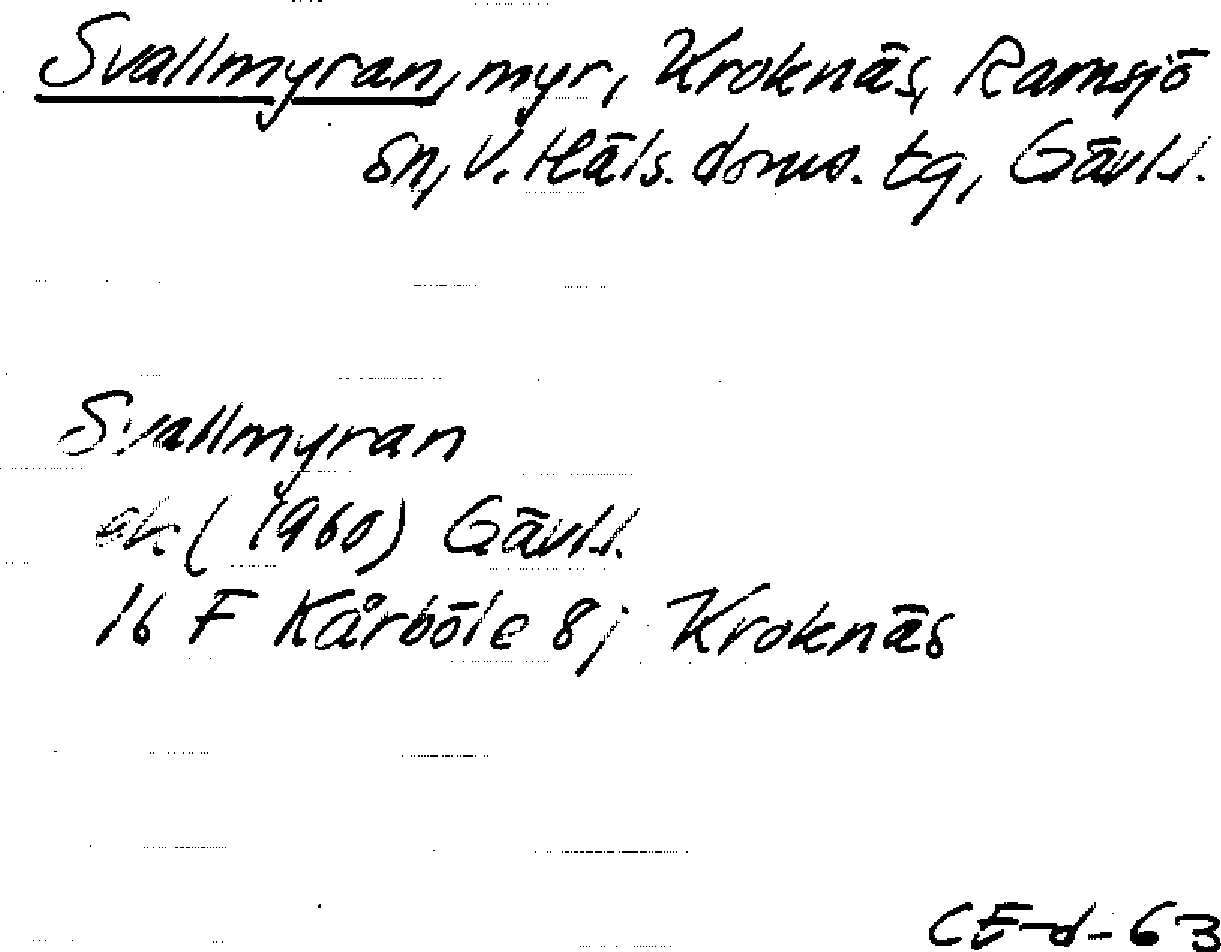 Svallmyran, myr, Kroknäs, Ramsjö
sn, V. Häls. doms. tg, Gävl.l.
Svallmyran
ek (1960) Gävl.l.
16 F Kårböle 8j Kroknäs
CE-d-63